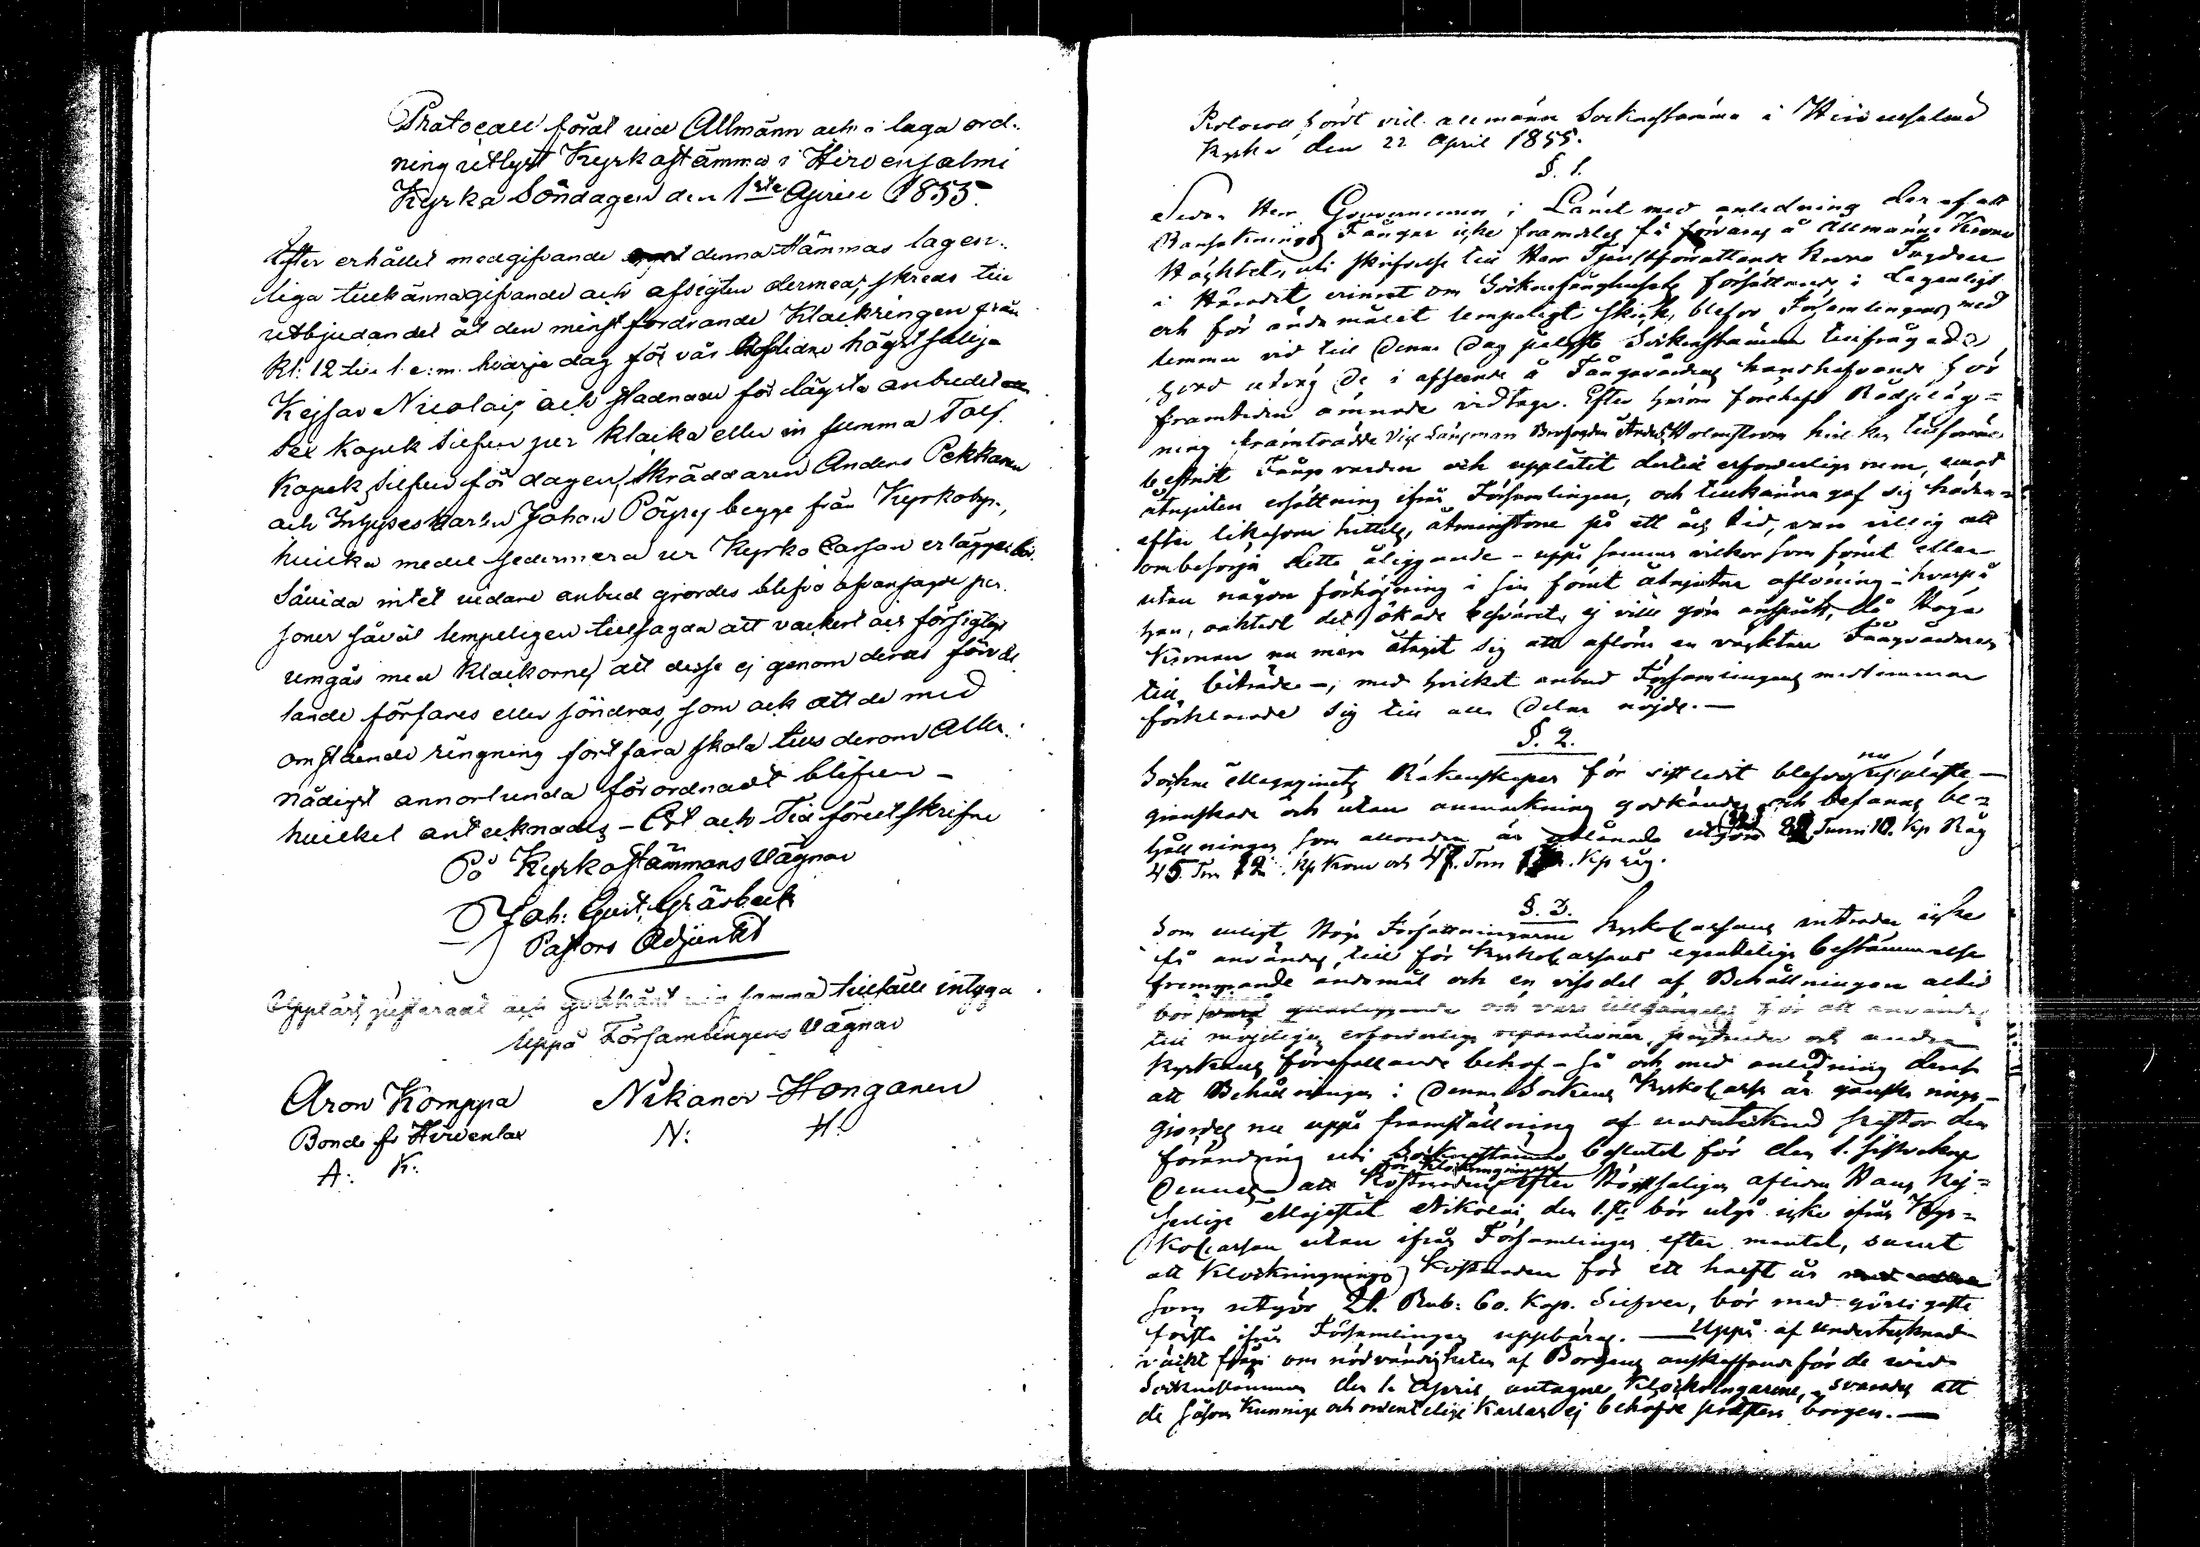 Protocoll fördt vid Allmänn och i laga ord-
ning utlyst Kyrkostämma i Hirvensalmi
Kyrka Söndagen den 1ste Aprill 1855.
Efter erhållet medgifvande denna stämmas lagen-
liga tillkännagifvande och afsigten dermed, skreds till
utbjudandet åt den minst fordrande Klockringen från
kl: 12 till 1 e:m. hvarje dag för vår högstsalige
Kejsar Nicolai, och stadnade för lägsta anbudet
Sex Kopek Silfver per klocka eller in summa Tolf
Kopek Silfver för dagen, Skräddaren Anders Pekkanen
och Inhyseskarlen Johan Pöyry begge från Kyrkoby,
hvilka medel sedermera ur Kyrko Cassan erlägges bör.
Såvida intet vidare anbud gjordes blefvo ofvansagde per-
soner såväl lempeligen tillsagda att vackert och försigtigt
umgås med klockorne, att desse ej genom deras förvål-
lande förfares eller söndras, som ock att de med
omstående ringning fortfara skola tills derom Aller-
nådigst annorlunda förordnadt blifver -
hvilket antecknades - Ort och Tid förutskrifne
På Kyrkostämmans vägnar
Joh: Gust. Gråsbeck
Pastors Adjunkt
Uppläst, justeradt och godkändt vid samma tillfälle intyga
Uppå Församlingens vägnar
Aron Komppa Nikanor Honganen
Bonde fr Hirvenlax N: H:
A: K:
Protocoll, fördt vid allmänn Sockenstämma i Hirvensalmi
Kyrka den 22 April 1855.
§. 1.
Sedan Herr Gouverneuren i Länet med anledning deraf att
Ransaknings Fångar icke framdeles få förvaras å Allmänna Krono
Häktet, uti skrifvelse till Herr Tjenstförrättande Krono Fogden
i Häradet erinrat om Sockenfängelsets försättande i lagenligt
och för ändamålet lempeligt skick, blefvo Församlingens med-
lemmar vid till denna dag pålyst Sockenstämma tillfrågade,
hvad utväg de i afseende å Fångvårdens handhafvande för
framtiden ämnade vidtaga. Efter härom förehafd Rådpläg-
ning framträdde Vice Länsman Anders Holmström hvilken tillförene
bestridt Fångvården och upplåtit dertill erforderliga rum, emot
åtnjuten ersättning ifrån Församlingen, och tillkännagaf sig hädan-
efter likasom hittills, åtminstone på ett års tid, vara villig att
ombesörja detta åliggande - uppå samma vilkor som förut eller
utan någon förhöjning i sin förut åtnjutna aflöning - hvarpå
han, oaktadt det ökade besväret, ej ville göra anspråk, då Höga
Kronan nu mera åtagit sig att aflöna en väktare Fångvårdens
till biträde -, med hvilket anbud Församlingens medlemmar
förklarade sig till alla delar nöjde. -
§. 2.
Sockne Magazinets Räkenskaper för sistledit blefvo nu uppläste -
granskade och utan anmärkning godkändes och befanns be-
hållningen som allenden är utlånade utgöra Tunn 10. Kp Råg
45 Tnn 12 Kp Korn och 47. Tnn Kp råg.
§. 3.
Som enligt Höga Författningarne Kyrko Cassans inträder icke
få användas till för Kyrko Cassans egentliga bestämmelse
fremmande ändamål och en viss del af Behållningen alltid
bör qvarliggande och vara tillgängelig för att användas
till möjeliga, erforderliga reparationer, prydnader och andra
Kyrkans förefallande behof - så och med anledning deraf
att Behållningen i denna Sockens Kyrko Cassa är ganska ringa -
gjordes nu uppå framställning af undertecknad Pastor den
förändring uti Sockenstämmo beslutet för den 1. sistvekne
dennes - att Kostnaden för Klockringningen efter Högstsaligen afledne Hans Kej-
serliga Majestät Nikolai den 1.ste bör utgå icke ifrån Kyr-
ko Cassan utan ifrån Församlingen efter mantal, samt
att Klockringnings Kostnaden för ett halft år
som utgör 21. Rub: 60. Kop. Silfver, bör med görligaste
första ifrån Församlingen uppbäras. - Uppå af undertecknad
väckt fråga om nödvändigheten af Borgens anskaffande för de wid
Sockenstämman den 1. April antagne Klockringarene, svarades att
de såsom kunnige och ordentelige karlar ej behöfde prestera borgen. -